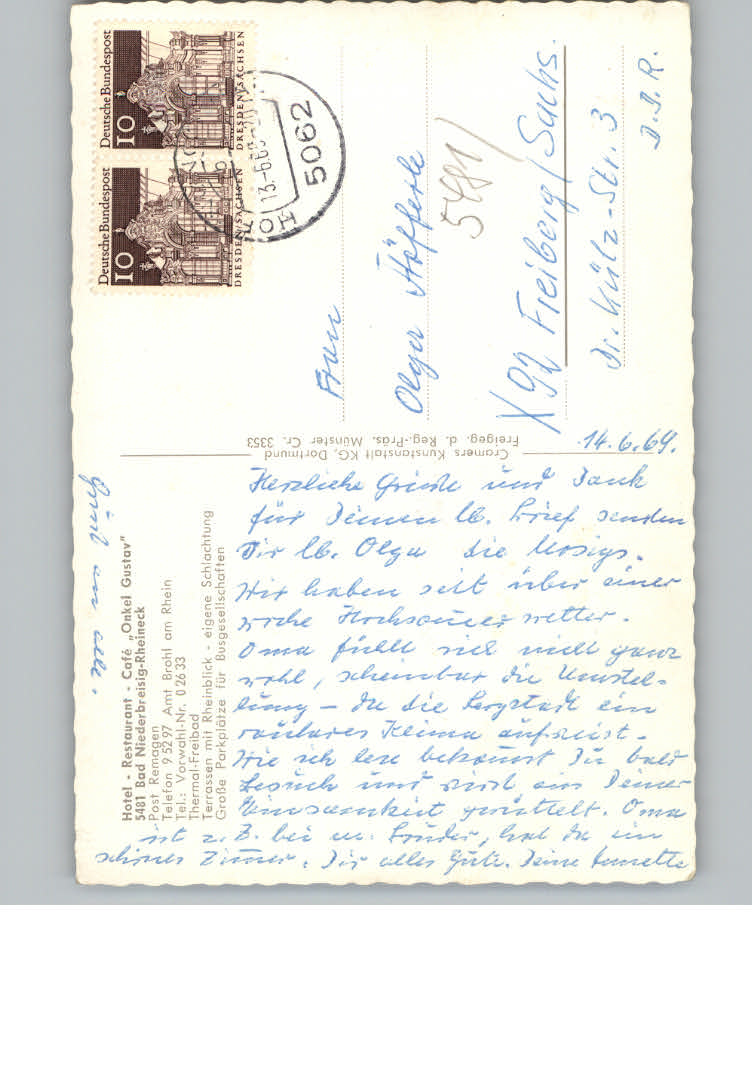 Hotel - Restaurant - Café „Onkel Gustav"
5481 Bad Niederbreisig-Rheineck
Post Remagen
Telefon 9 52 97 Amt Brohl am Rhein
Tel.: Vorwahl-Nr. 0 26 33
Thermal-Freibad
Terrassen mit Rheinblick - eigene Schlachtung
Große Parkplätze für Busgesellschaften
Cramers Kunstanstalt KG, Dortmund
Freigeg. d. Reg.-Präs. Münster Cr. 3353
14.6.69.
Herzliche Grüße und Dank
für Deinen lb. Brief senden
Dir lb. Olga die
Wir haben seit über einer
Woche Hochsommerwetter.
Oma fühlt sich nicht ganz
wohl, scheinbar die Umstel-
lung - da die Bergstadt ein
rauheres Klima aufweist.
Wie ich lese bekommst Du bald
Besuch und wirst aus Deiner
Einsamkeit gerüttelt. Oma
ist z. Z. bei m. Bruder, hat da ein
schönes Zimmer. Dir alles Gute. Deine Annette
Gruß an alle.
Deutsche Bundespost
10
DRESDEN/SACHSEN
Deutsche Bundespost
10
DRESDEN/SACHSEN
5062
13.-6.69
Frau
Olga Höfferle
5481
X 92 Freiberg/Sachs.
Dr. Külz-Str. 3
D.D.R.